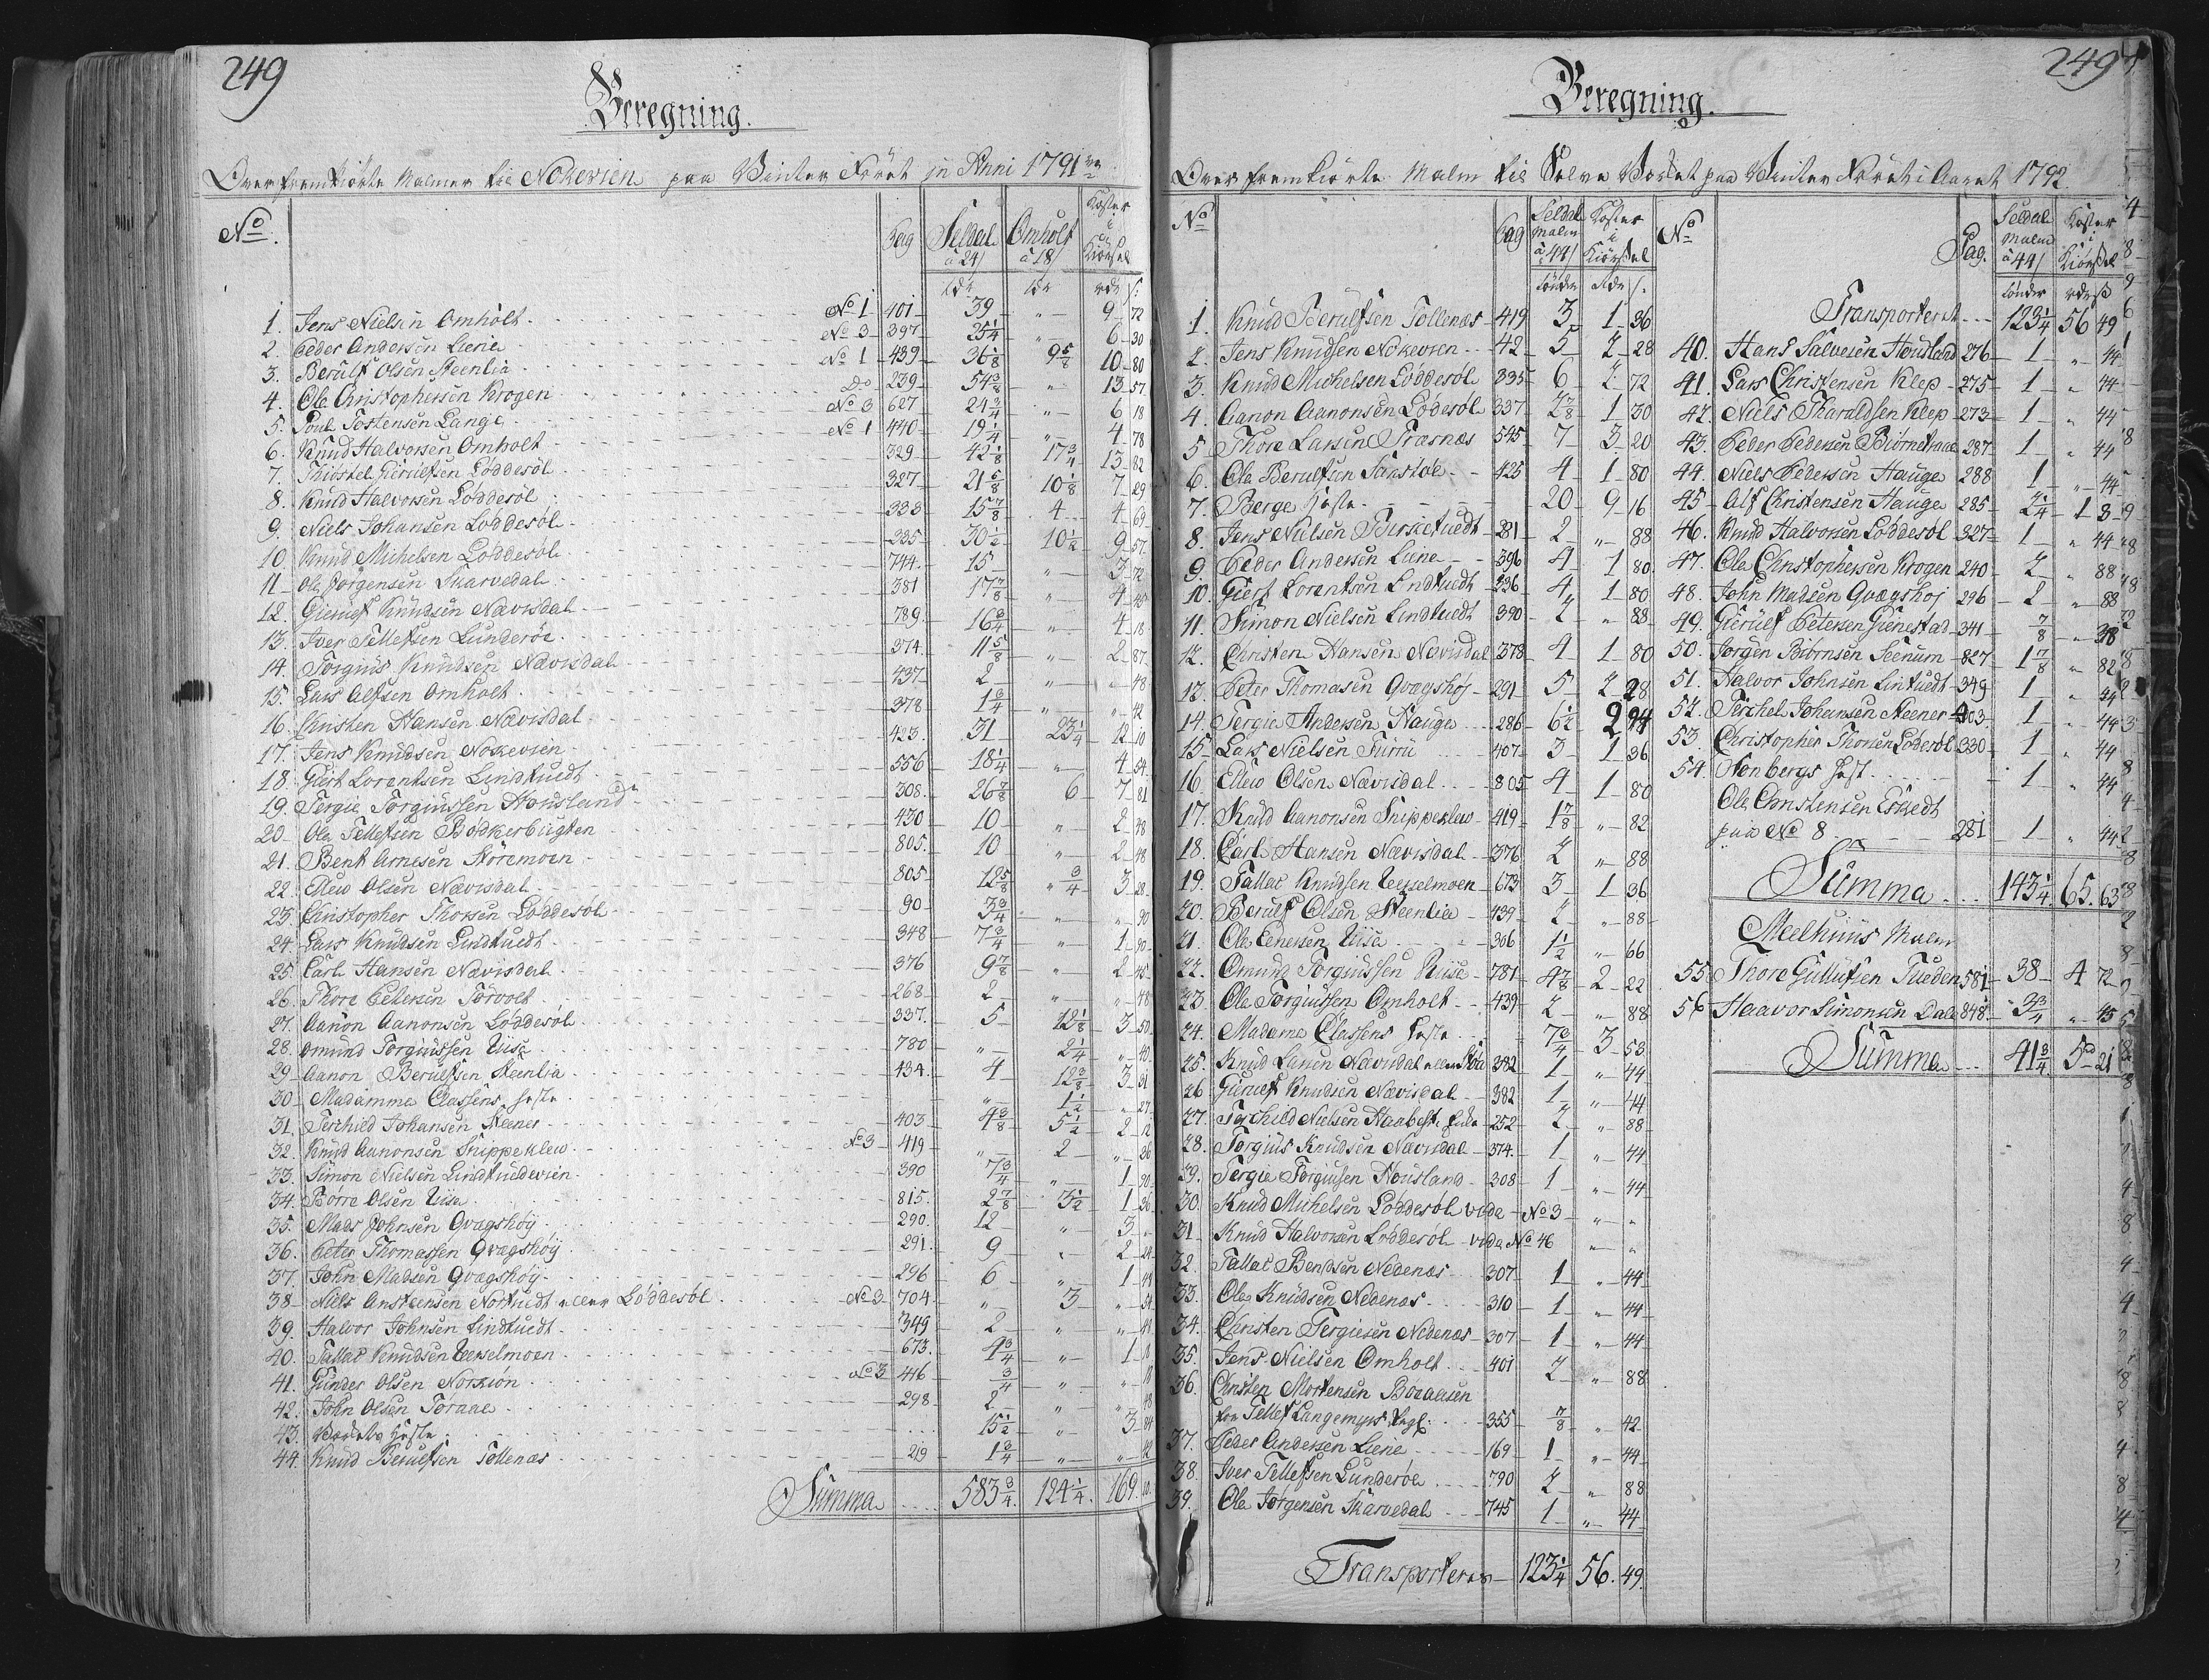 249
Beregning.
Over fremkiørte Malmer til Nokevien paa Winter Føret in Anni 1791
No. Pag Seldal à 24/ Omholt à 18/ Koster i Kiørsel
1. Jens Nielsen Omholt No 1 401 39 " 9 72
2. Peder Andersen Liene No 3 397 25 1/4 " 6 30
3. Berulf Olsen Steenlia No 1 439 36 1/8 9 5/8 10 80
4. Ole Christophersen Krogen Do 239 54 3/8 " 13 57
5. Poul Tostensen Lange No 3 627 24 3/4 " 6 18
6. Knud Halvorsen Omholt No 1 440 19 1/4 " 4 78
7. Thiostel Gierulfsen Løddesøl 329 42 1/8 17 3/4 13 82
8. Knud Halvorsen Løddesøl 327 21 6/8 10 1/8 7 29
9. Niels Johansen Løddesøl 333 15 7/8 4 4 69
10. Knud Michelsen Løddesøl 335 30 1/2 10 1/2 9 57
11. Ole Jørgensen Skarvedal 744 15 " 3 72
12. Gierulf Knudsen Nævisdal 381 17 7/8 " 4 45
13. Iver Tellefsen Lunderøe 789 16 3/4 " 4 18
14. Torgius Knudsen Nævisdal 374 11 5/8 " 2 87
15. Lars Alfsen Omholt 437 2 " " 48
16. Christen Hansen Nævisdal 378 1 3/4 " " 42
17. Jens Knudsen Nokevien 423 31 23 1/4 12 10
18. Giert Lorentsen Lindtuedt 556 18 1/4 " 4 54
19. Tergie Torgiussen Housland 308 26 7/8 6 7 81
20. Ole Tellefsen Bødkerbugten 430 10 " 2 48
21. Bent Arnesen Støremoen 805 10 " 2 48
22. Elleo Olsen Nævisdal 805 12 5/8 " 3/4 3 28
23. Christopher Thorsen Løddesøl 90 3 3/4 " " 90
24. Lars Knudsen Lindtuedt 348 7 3/4 " 1 90
25. Carl Hansen Nævisdal 376 9 7/8 " 2 45
26. Thore Petersen Torvolt 268 2 " " 48
27. Aanon Aanonsen Løddesøl 337 5 12 1/8 3 50
28. Omund Torgiussen Riise 780 " 2 1/4 " 40
29. Aanon Berulfsen Steenlia 434 4 12 3/8 3 31
30. Madamme Classens Heste " 1 1/2 " 27
31. Terchild Johansen Steener 403 4 3/8 5 1/2 2 12
32. Knud Aanonsen Snippeklew No 3 419 " 2 " 36
33. Simon Nielsen Lindtuedevien 390 7 3/4 " 1 90
34. Børre Olsen Riise 815 2 7/8 3 1/2 1 36
35. Mads Johnsen Qvagshøy 290 12 " 3 "
36. Peter Thomassen Qvægshøy 291 9 " 2 24
37. John Madsen Qvægshøy 296 6 " 1 48
38. Niels Anstensen Nortuedt eller Løddesøl No 3 704 " 3 " 54
39. Halvor Johnsen Lindtuedt 349 2 " " 48
40. Tallac Knudsen Uerselmoen 673 4 3/4 " 1 18
41. Gunder Olsen Norkion No 3 446 3/4 " " 18
42. John Olsen Toraae 298 2 " " 48
43. Værkets Heste 15 1/2 " 3 84
44. Knud Beruelfsen Tøllenæs 219 1 3/4 " " 42
Summa 583 3/4 124 1/4 169 10
249
Beregning.
Over fremkiørte Malm til Selve Værket paa Winter Føret i Aaret 1792
No Pag Seldal Malm à 44/ Koster i Kiørsel
tønder Rdr /.
1. Knud Berulfsen Tøllenæs 419 3 1 36
2. Jens Knudsen Nokevien 42 5 2 28
3. Knud Michelsen Løddesøl 335 6 2 72
4. Aanon Aanonsen Lødesøl 337 2 7/8 1 30
5. Thore Larsen Træsnæs 545 7 3 20
6. Ole Berulfsen Sanstøl 425 4 1 80
7. Berge Heste 20 9 16
8. Jens Nielsen Birketuedt 281 2 " 88
9. Peder Andersen Liene 396 4 1 80
10. Giert Lorentsen Lindtuedt 336 4 1 80
11. Simon Nielsen Lindtuedt 390 2 " 88
12. Christen Hansen Nævisdal 378 4 1 80
13. Peter Thomasen Qvægshøj 291 5 2 28
14. Tergie Andersen Hauge 286 6 1/2 2 94
15. Lars Nielsen Furru 407 3 1 36
16. Elleo Olsen Nævisdal 805 4 1 80
17. Knud Aanonsen Snippeklew 419 1 7/8 " 82
18. Carl Hansen Nævisdal 376 2 " 88
19. Tallac Knudsen Uerselmoen 673 3 1 36
20. Berulf Olsen Steenlia 439 2 " 88
21. Ole Pedersen Riise 306 1 1/2 " 66
22. Omund Torgiussen Riise 781 4 7/8 2 22
23. Ole Torgiussen Omholt 439 2 " 88
24. Madame Classens Heste 7 3/4 3 53
25. Knud Larsen Nævisdal eller 382 1 " 44
26. Gieruef Knudsen Nævisdal 382 1 " 44
27. Terchild Nielsen 252 2 " 88
28. Torgius Knudsen Nævisdal 374 1 " 44
29. Tergie Torgiusen Housland 308 1 " 44
30. Knud Michelsen Løddesøl vide No 3 " "
31. Knud Halvorsen Løddesøl vide No 46 " "
32. Tallac Bendsen Nedenæs 307 1 " 44
33. Ole Knudsen Nedenæs 310 1 " 44
34. Christen Tergiesen Nedenæs 307 1 " 44
35. Jens Nielsen Omholt 401 2 " 88
36. Christen Mortensen Boraasen
for Tellef Langemyrs Regl: 355 7/8 " 42
37. Peder Andersen Liene 169 1 " 44
38. Iver Tellefsen Lunderøe 790 2 " 88
39. Ole Jørgensen Skarvedal 745 1 " 44
Transporteres 123 1/4 56. 49.
No Pag. Seldal Malm à 44/ Koster i Kiørsel
tønder rdr ß
Transporteret 123 1/4 56 49
40. Hans Salvesen Housland 276 1 " 44
41. Lars Christensen Klep 275 1 " 44
42. Niels Tharaldsen Klep 273 1 " 44
43. Peder Pedersen Biørnetraae 287 1 " 44
44. Niels Pedersen Hauge 288 1 " 44
45. Alf Christensen Hauge 285 2 1/4 1 8
46. Knud Halvorsen Løddesøl 327 1 " 44
47. Ole Christophersen Krogen 240 2 " 88
48. John Madsen Qvægshøj 296 2 " 88
49. Gieruef Petersen Gienestad 341 7/8 " 38
50. Jørgen Biørnsen Seenum 827 1 7/8 " 82
51. Halvor Johnsen Lintuedt 349 1 " 44
52. Terchel Johansen Steener 403 1 " 44
53. Christopher Thorsen Lødesøl 330 1 " 44
54. Nenbergs Hest 1 " 44
Ole Christensen Eskedt
paa No 8 281 1 " 44
Summa 143 1/4 65. 63
Meelhuus Malm
55. Thore Gullufsen Tueden 581 38 4 72
56. Haavor Simonsen Dale 848 3 3/4 " 45
Summa 41 3/4 5 21